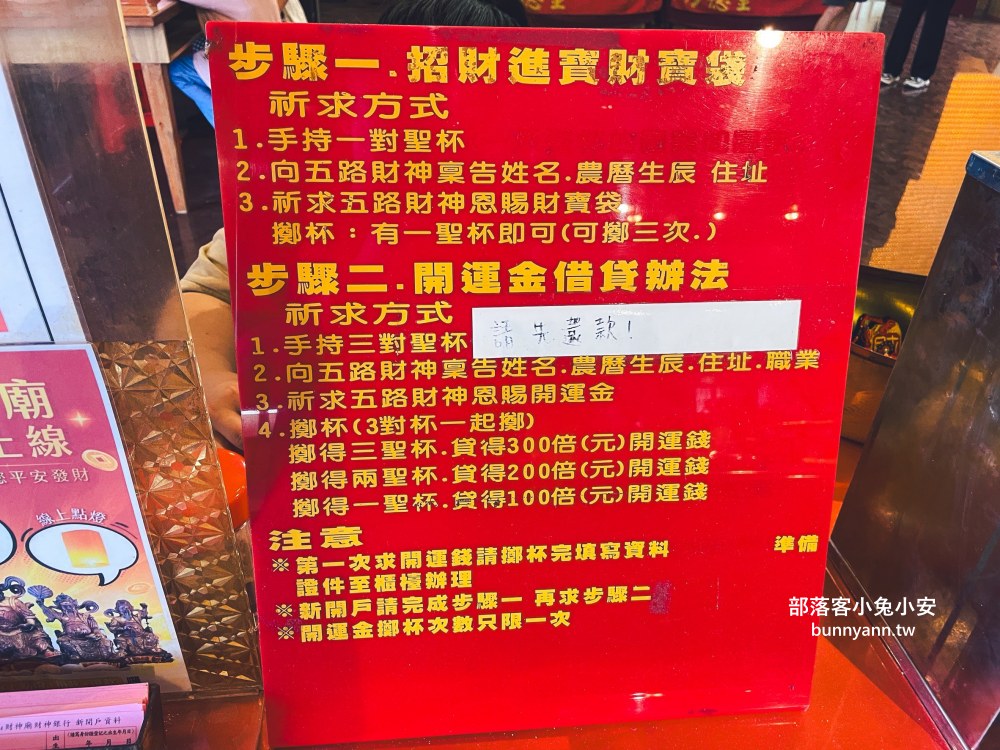 步驟一.招財進寶財寶袋
祈求方式
1.手持一對聖杯
2.向五路財神稟告姓名.農曆生辰 住址
3.祈求五路財神恩賜財寶袋
擲杯：有一聖杯即可(可擲三次.)
步驟二.開運金借貸辦法
祈求方式
請先還款!
1.手持三對聖杯
2.向五路財神稟告姓名.農曆生辰.住址.職業
3.祈求五路財神恩賜開運金
4.擲杯(3對杯一起擲)
擲得三聖杯.貸得300倍(元)開運錢
擲得兩聖杯.貸得200倍(元)開運錢
擲得一聖杯.貸得100倍(元)開運錢
注意
※第一次求開運錢請擲杯完填寫資料 準備
證件至櫃檯辦理
※新開戶請完成步驟一 再求步驟二
※開運金擲杯次數只限一次
廟
上線
平安發財
線上點燈
財神廟財神銀行 新開戶資料
年 月 日
部落客小兔小安
bunnyann.tw